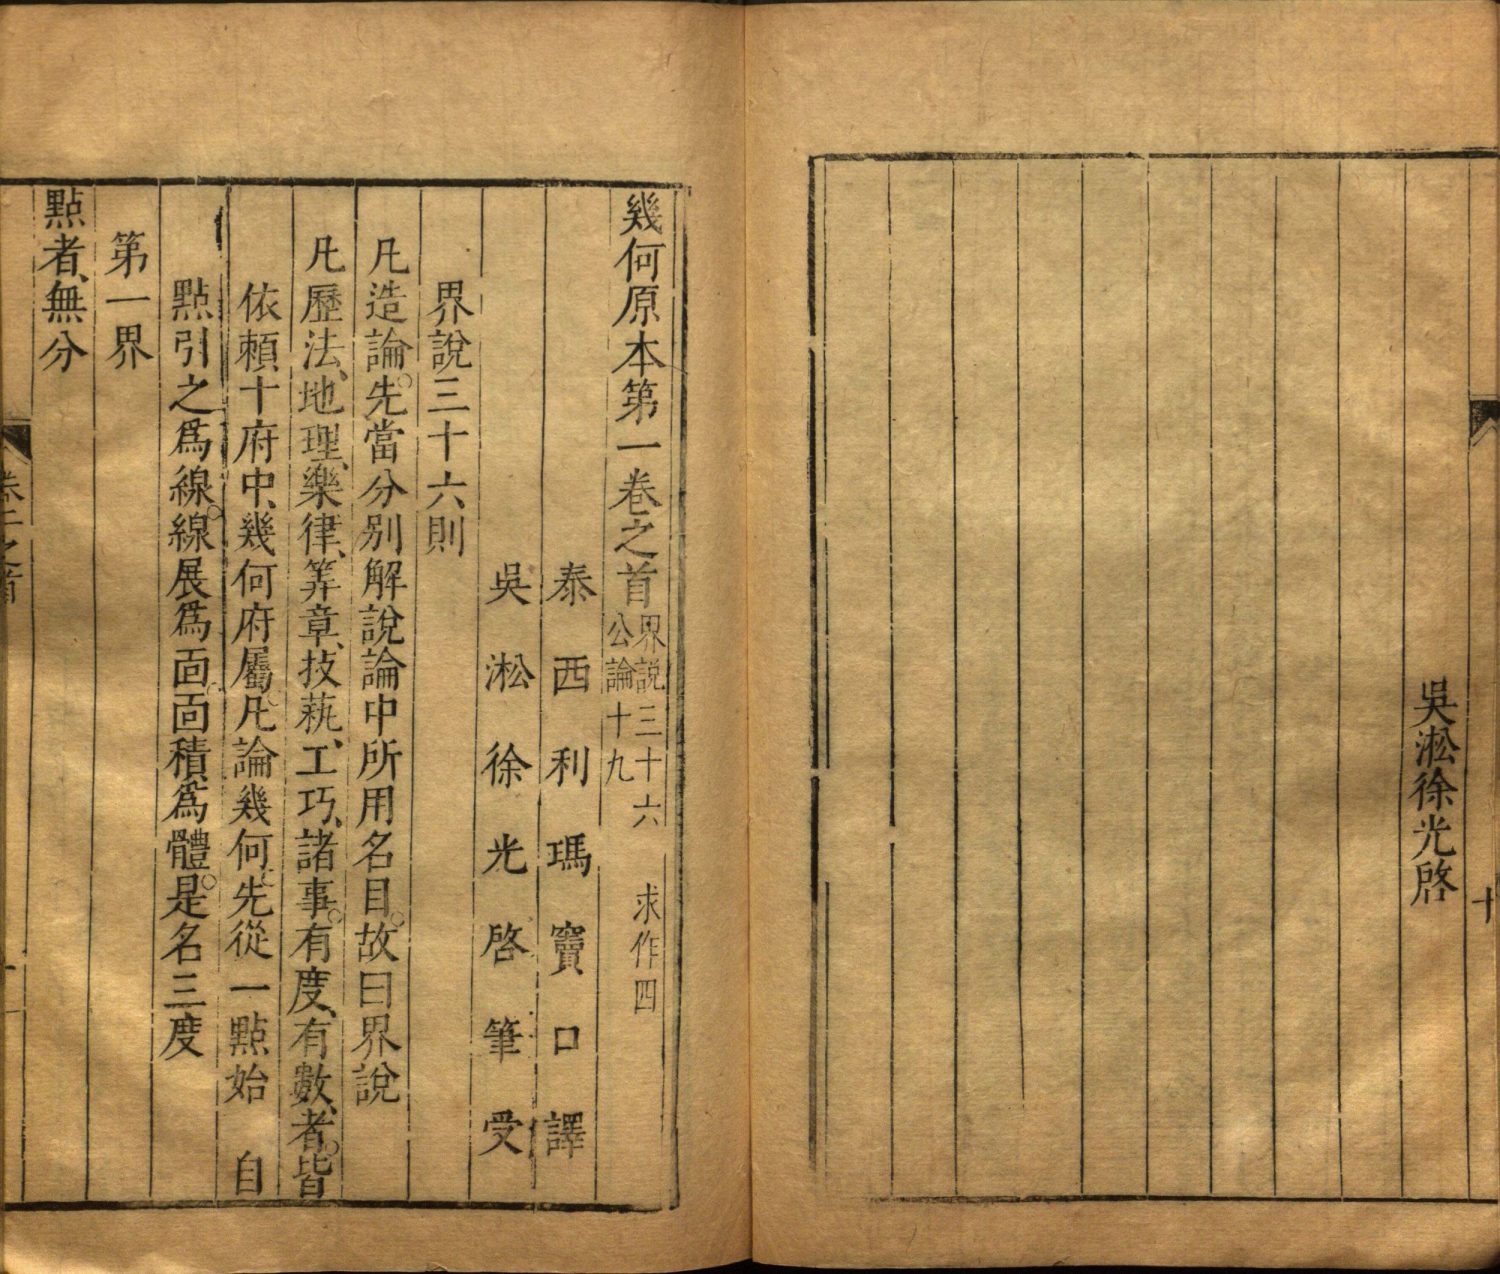 吳淞徐光啓
十
幾何原本第一卷之首 界說三十六 求作四
公論十九
泰西利瑪竇口譯
吳淞徐光啓筆受
界說三十六則
凡造論。先當分別解說論中所用名目。故曰界說
凡歷法、地理、樂律、筭章、技藝、工巧、諸事。有度、有數、者。皆
依賴十府中、幾何府屬。凡論幾何。先從一點始 自
點引之爲線。線展爲面。面積爲體。是名三度
第一界
點者、無分